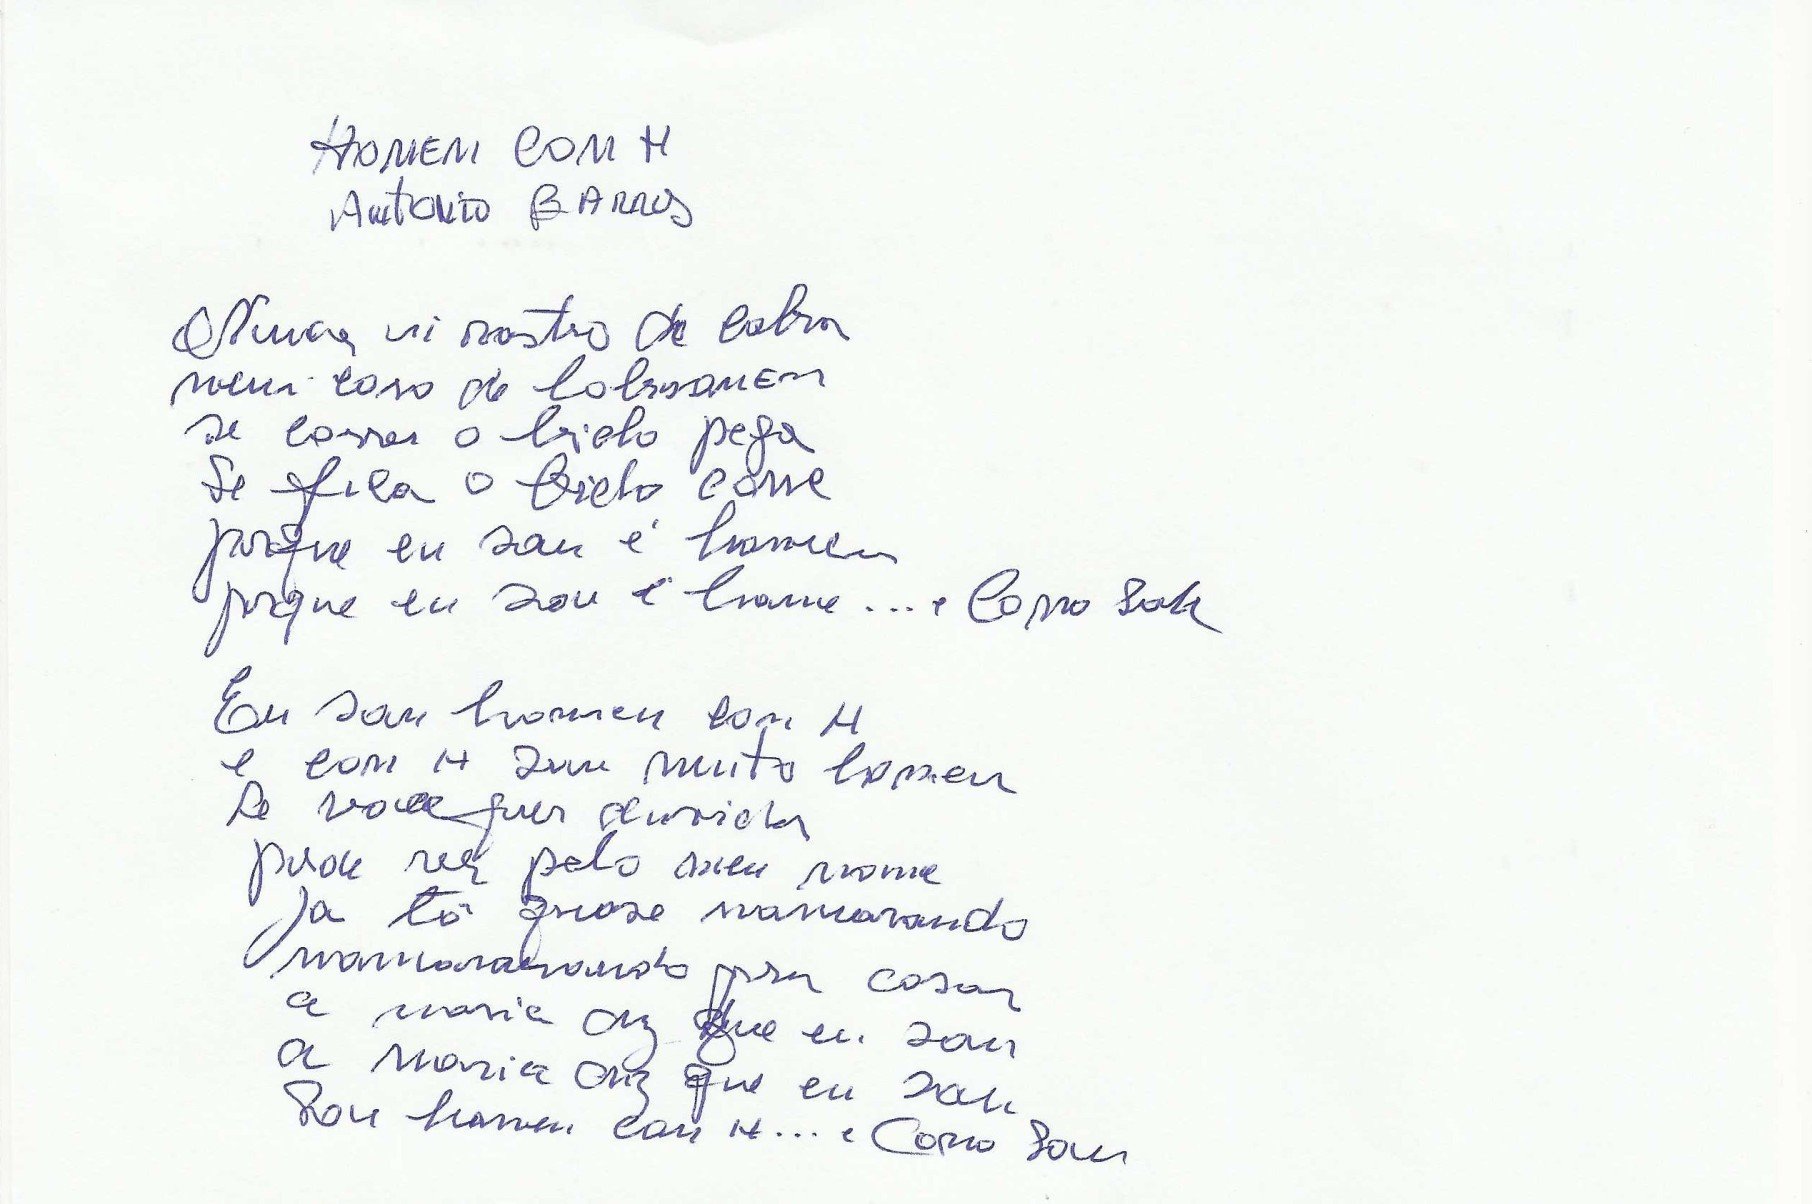 HOMEM COM H
Antonio BARROS
Nunca vi rastro de cobra
nem couro de lobisomem
se correr o bicho pega
Se fica o bicho come
porque eu sou é homem
porque eu sou é home ... e Como Sou
Eu sou homem com H
e com H sou muito homem
Se você quer duvida
pode ver pelo meu nome
Ja tô quase namorando
namorando pra casar
a maria diz que eu sou
a Maria diz que eu sou
Sou homem com H ... e Como Sou